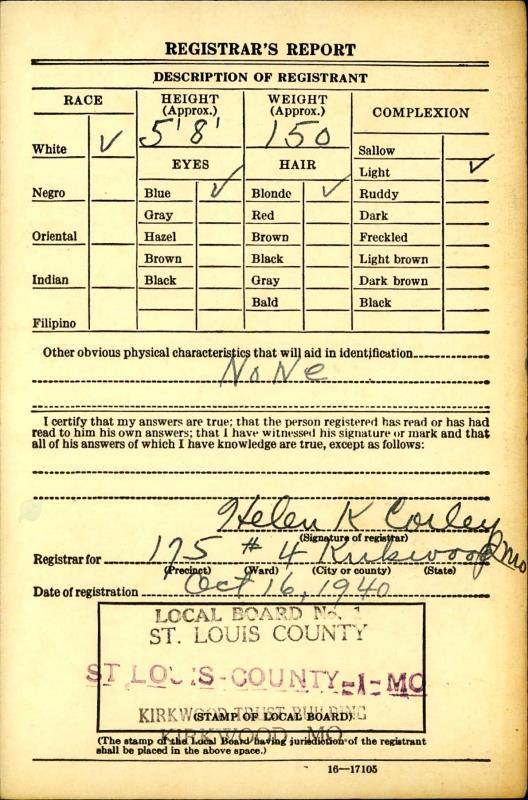 REGISTRAR'S REPORT
DESCRIPTION OF REGISTRANT
RACE
HEIGHT
(Approx.)
WEIGHT
(Approx.)
COMPLEXION
5'8'
150
White ✓
Sallow
EYES
HAIR
Light ✓
Negro
Blue ✓
Blonde ✓
Ruddy
Gray
Red
Dark
Oriental
Hazel
Brown
Freckled
Brown
Black
Light brown
Indian
Black
Gray
Dark brown
Bald
Black
Filipino
Other obvious physical characteristics that will aid in identification
None
I certify that my answers are true; that the person registered has read or has had
read to him his own answers; that I have witnessed his signature or mark and that
all of his answers of which I have knowledge are true, except as follows:
Helen K Corley
(Signature of registrar)
Registrar for 175 # 4 Kirkwood Mo
(Precinct) (Ward) (City or county) (State)
Date of registration Oct 16, 1940
LOCAL BOARD No. 1
ST. LOUIS COUNTY
ST LOUIS COUNTY -1- MO
KIRKWOOD TRUST BUILDING
(STAMP OF LOCAL BOARD)
KIRKWOOD, MO.
(The stamp of the Local Board having jurisdiction of the registrant
shall be placed in the above space.)
16—17105